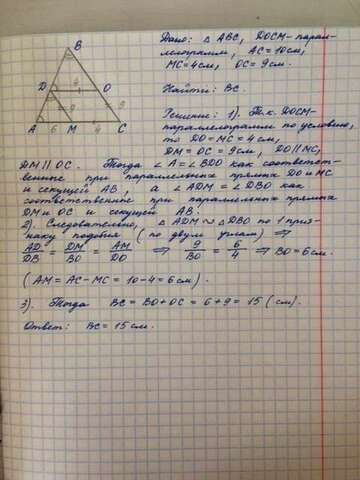 B
D
4
O
9
9
A
6
M
4
C
Дано: △ ABC, DOCM-парал-
лелограмм, AC = 10см,
MC = 4см, OC = 9см.
Найти: BC.
Решение: 1). Т.к. DOCM-
параллелограмм по условию,
то DO = MC = 4см,
DM = OC = 9см, DO || MC,
DM || OC. Тогда ∠A = ∠BDO как соответст-
венные при параллельных прямых DO и MC
и секущей AB, а ∠ADM = ∠DBO как
соответственные при параллельных прямых
DM и OC и секущей AB.
2). Следовательно, △ADM ∾ △DBO по 1 приз-
наку подобия (по двум углам) ⇒
AD/DB = DM/BO = AM/DO ⇒ 9/BO = 6/4 ⇒ BO = 6см.
(AM = AC - MC = 10 - 4 = 6см).
3). Тогда BC = BO + OC = 6 + 9 = 15 (см).
Ответ: BC = 15см.